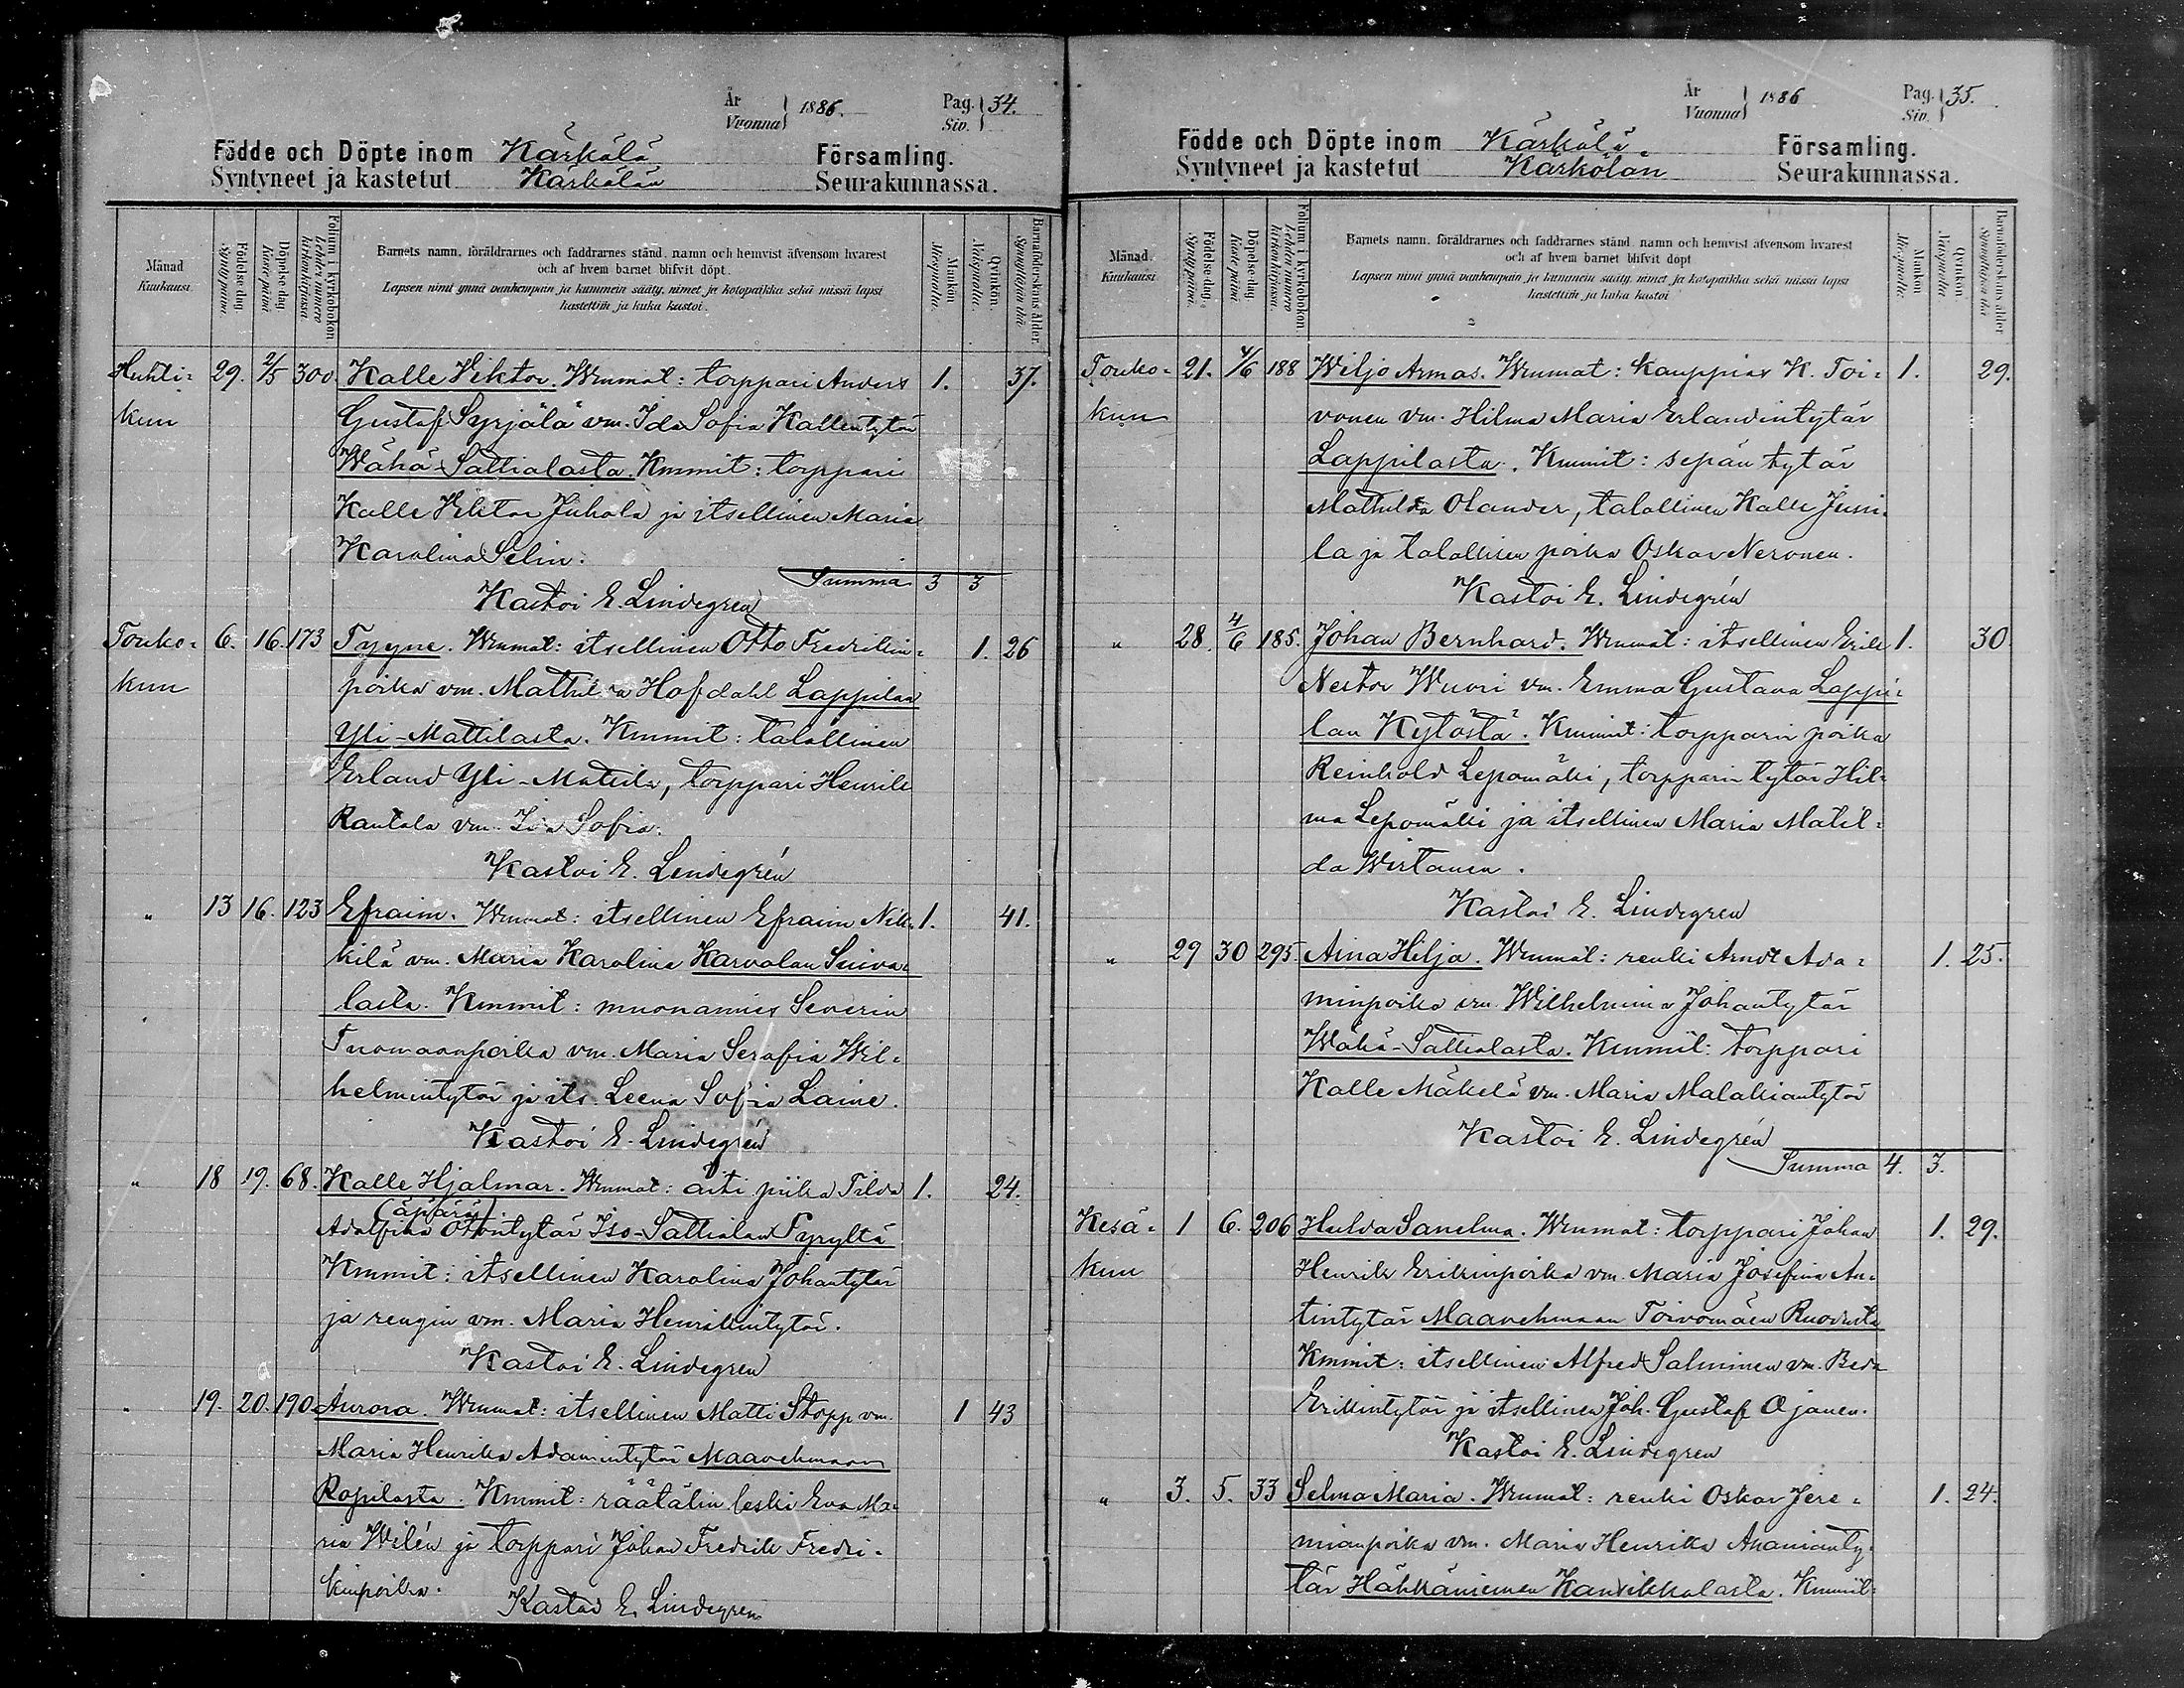 År
Vuonna } 1886. Pag.
Siv. } 34.
Födde och Döpte inom Kärkölä Församling.
Syntyneet ja kastetut Kärkölän Seurakunnassa.
Månad
Kuukausi.
Födelse-dag.
Syntymäpäivä.
Döpelse-dag.
Kaste-päivä.
Folium i kyrkoboken.
Lehden numero
kirkonkirjassa.
Barnets namn, föräldrarnes och faddrarnes stånd, namn och hemvist äfvensom hvarest
och af hvem barnet blifvit döpt.
Lapsen nimi ynnä vanhempain ja kummein sääty, nimet ja kotopaikka sekä missä lapsi
kastettiin ja kuka kastoi.
Mankön.
Miespuolia.
Qvinkön.
Naispuolia.
Barnaföderskans ålder.
Synnyttäjän ikä.
Huhti= 29. 2/5 300 Kalle Viktor. Wmmat: torppari Anders 1. 37.
kuu Gustaf Syrjälä vm. Ida Sofia Kallentytär
Wähä Sattialasta. Kmmit: torppari
Kalle Viktor Juhola ja itsellinen Maria
Karolina Selin.
Summa 3 3
Kastoi E. Lindegrén
Touko= 6. 16. 173 Tyyne. Wmmat: itsellinen Otto Fredrikin= 1. 26
kuu poika vm. Mathilda Hofdahl Lappilan
Yli-Mattilasta. Kmmit: talollinen
Erland Yli-Mattila, torppari Henrik
Rantala vm. Ida Sofia.
Kastoi E. Lindegrén
" 13 16. 123 Efraim. Wmmat: itsellinen Efraim Nik= 1. 41.
kilä vm. Maria Karolina Karvalan Suiva=
lasta. Kmmit: muonamies Severin
Tuomaanpoika vm. Maria Serafia Wil=
helmintytär ja its. Leena Sofia Laine.
Kastoi E. Lindegrén
" 18 19. 68. Kalle Hjalmar. Wmmat: äiti piika Tilda 1. 24.
(äpärä)
Adolfina Ottontytär Iso-Sattialan Pyryltä
Kmmit: itsellinen Karolina Johantytär
ja rengin vm. Maria Henrikintytär.
Kastoi E. Lindegren
" 19. 20. 190 Aurora. Wmmat: itsellinen Matti Stopp vm. 1 43
Maria Henrika Adamintytär Maavehmaan
Ropilasta. Kmmit: räätälin leski Eva Ma=
ria Wilén ja torppari Johan Fredrik Fredri=
kinpoika.
Kastoi E. Lindegren
År
Vuonna } 1886 Pag.
Siv. } 35.
Födde och Döpte inom Kärkölä Församling.
Syntyneet ja kastetut Kärkölän Seurakunnassa.
Månad.
Kuukausi
Födelse-dag.
Syntymäpäivä.
Döpelse-dag
Kaste-päivä
Folium i kyrkoboken.
Lehden numero
kirkonkirjassa.
Barnets namn, föräldrarnes och faddrarnes stånd, namn och hemvist äfvensom hvarest
och af hvem barnet blifvit döpt
Lapsen nimi ynnä vanhempain ja kummein sääty, nimet ja kotopaikka sekä missä lapsi
kastettiin ja kuka kastoi
Mankön
Miespuolia.
Qvinkön
Naispuolia
Barnaföderskans ålder
Synnyttäjän ikä
Touko= 21. 4/6 188 Wiljo Armas. Wmmat: Kauppias K. Toi= 1. 29.
kuu vonen vm. Hilma Maria Erlandintytär
Lappilasta. Kmmit: sepän tytär
Mathilda Olander, talollinen Kalle Jussi=
la ja talollisen poika Oskar Neronen.
Kastoi E. Lindegrén
" 28. 4/6 185. Johan Bernhard. Wmmat: itsellinen Erik 1. 30.
Nestor Wuori vm. Emma Gustava Lappi=
lan Kytöstä. Kmmit: torpparin poika
Reinhold Lepomäki, torpparin tytär Hil=
ma Lepomäki ja itsellinen Maria Matil=
da Wirtanen.
Kastoi E. Lindegren
" 29 30 295. Aina Hilja. Wmmat: renki Arndt Ada= 1. 25.
minpoika vm. Wilhelmina Johantytär
Wähä-Sattialasta. Kmmit: torppari
Kalle Mäkelä vm. Maria Malakiantytär
Kastoi E. Lindegrén
Summa 4. 3.
Kesä= 1 6. 206 Hulda Sanelma. Wmmat: torppari Johan 1. 29.
kuu Henrik Erikinpoika vm. Maria Josefina An=
tintytär Maavehmaan Toivomäen Ruodusta
Kmmit: itsellinen Alfred Salminen vm. Beda
Erikintytär ja itsellinen Joh. Gustaf Ojanen.
Kastoi E. Lindegren
" 3. 5. 33 Selma Maria. Wmmat: renki Oskar Jere= 1. 24.
mianpoika vm. Maria Henrika Ananianty=
tär Hähkäniemen Kankikkolasta. Kmmit: